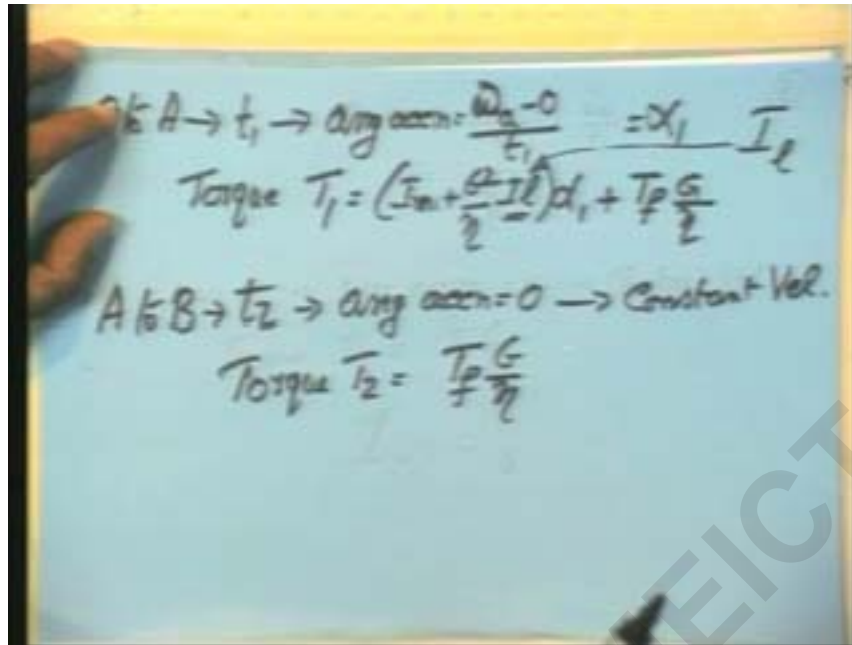 to A → t₁ → ang accn = (ω_a - 0)/t₁ = α₁ I_l
Torque T₁ = (I_m + G²/η I_l) α₁ + T_f G/η
A to B → t₂ → ang accn = 0 → Constant Vel.
Torque T₂ = T_f G/η
EICT